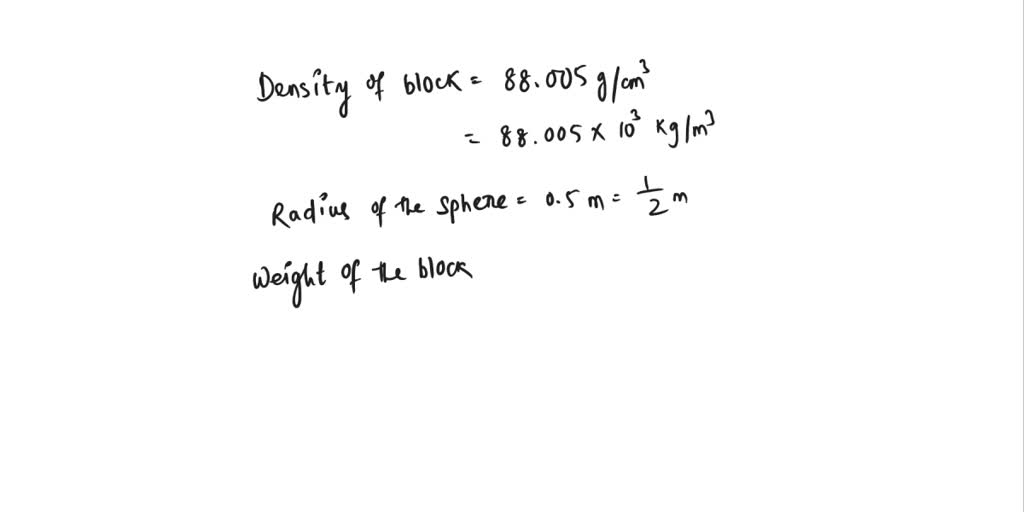 Density of block = 88.005 g/cm³
= 88.005 × 10³ Kg/m³
Radius of the sphere = 0.5 m = 1/2 m
Weight of the block